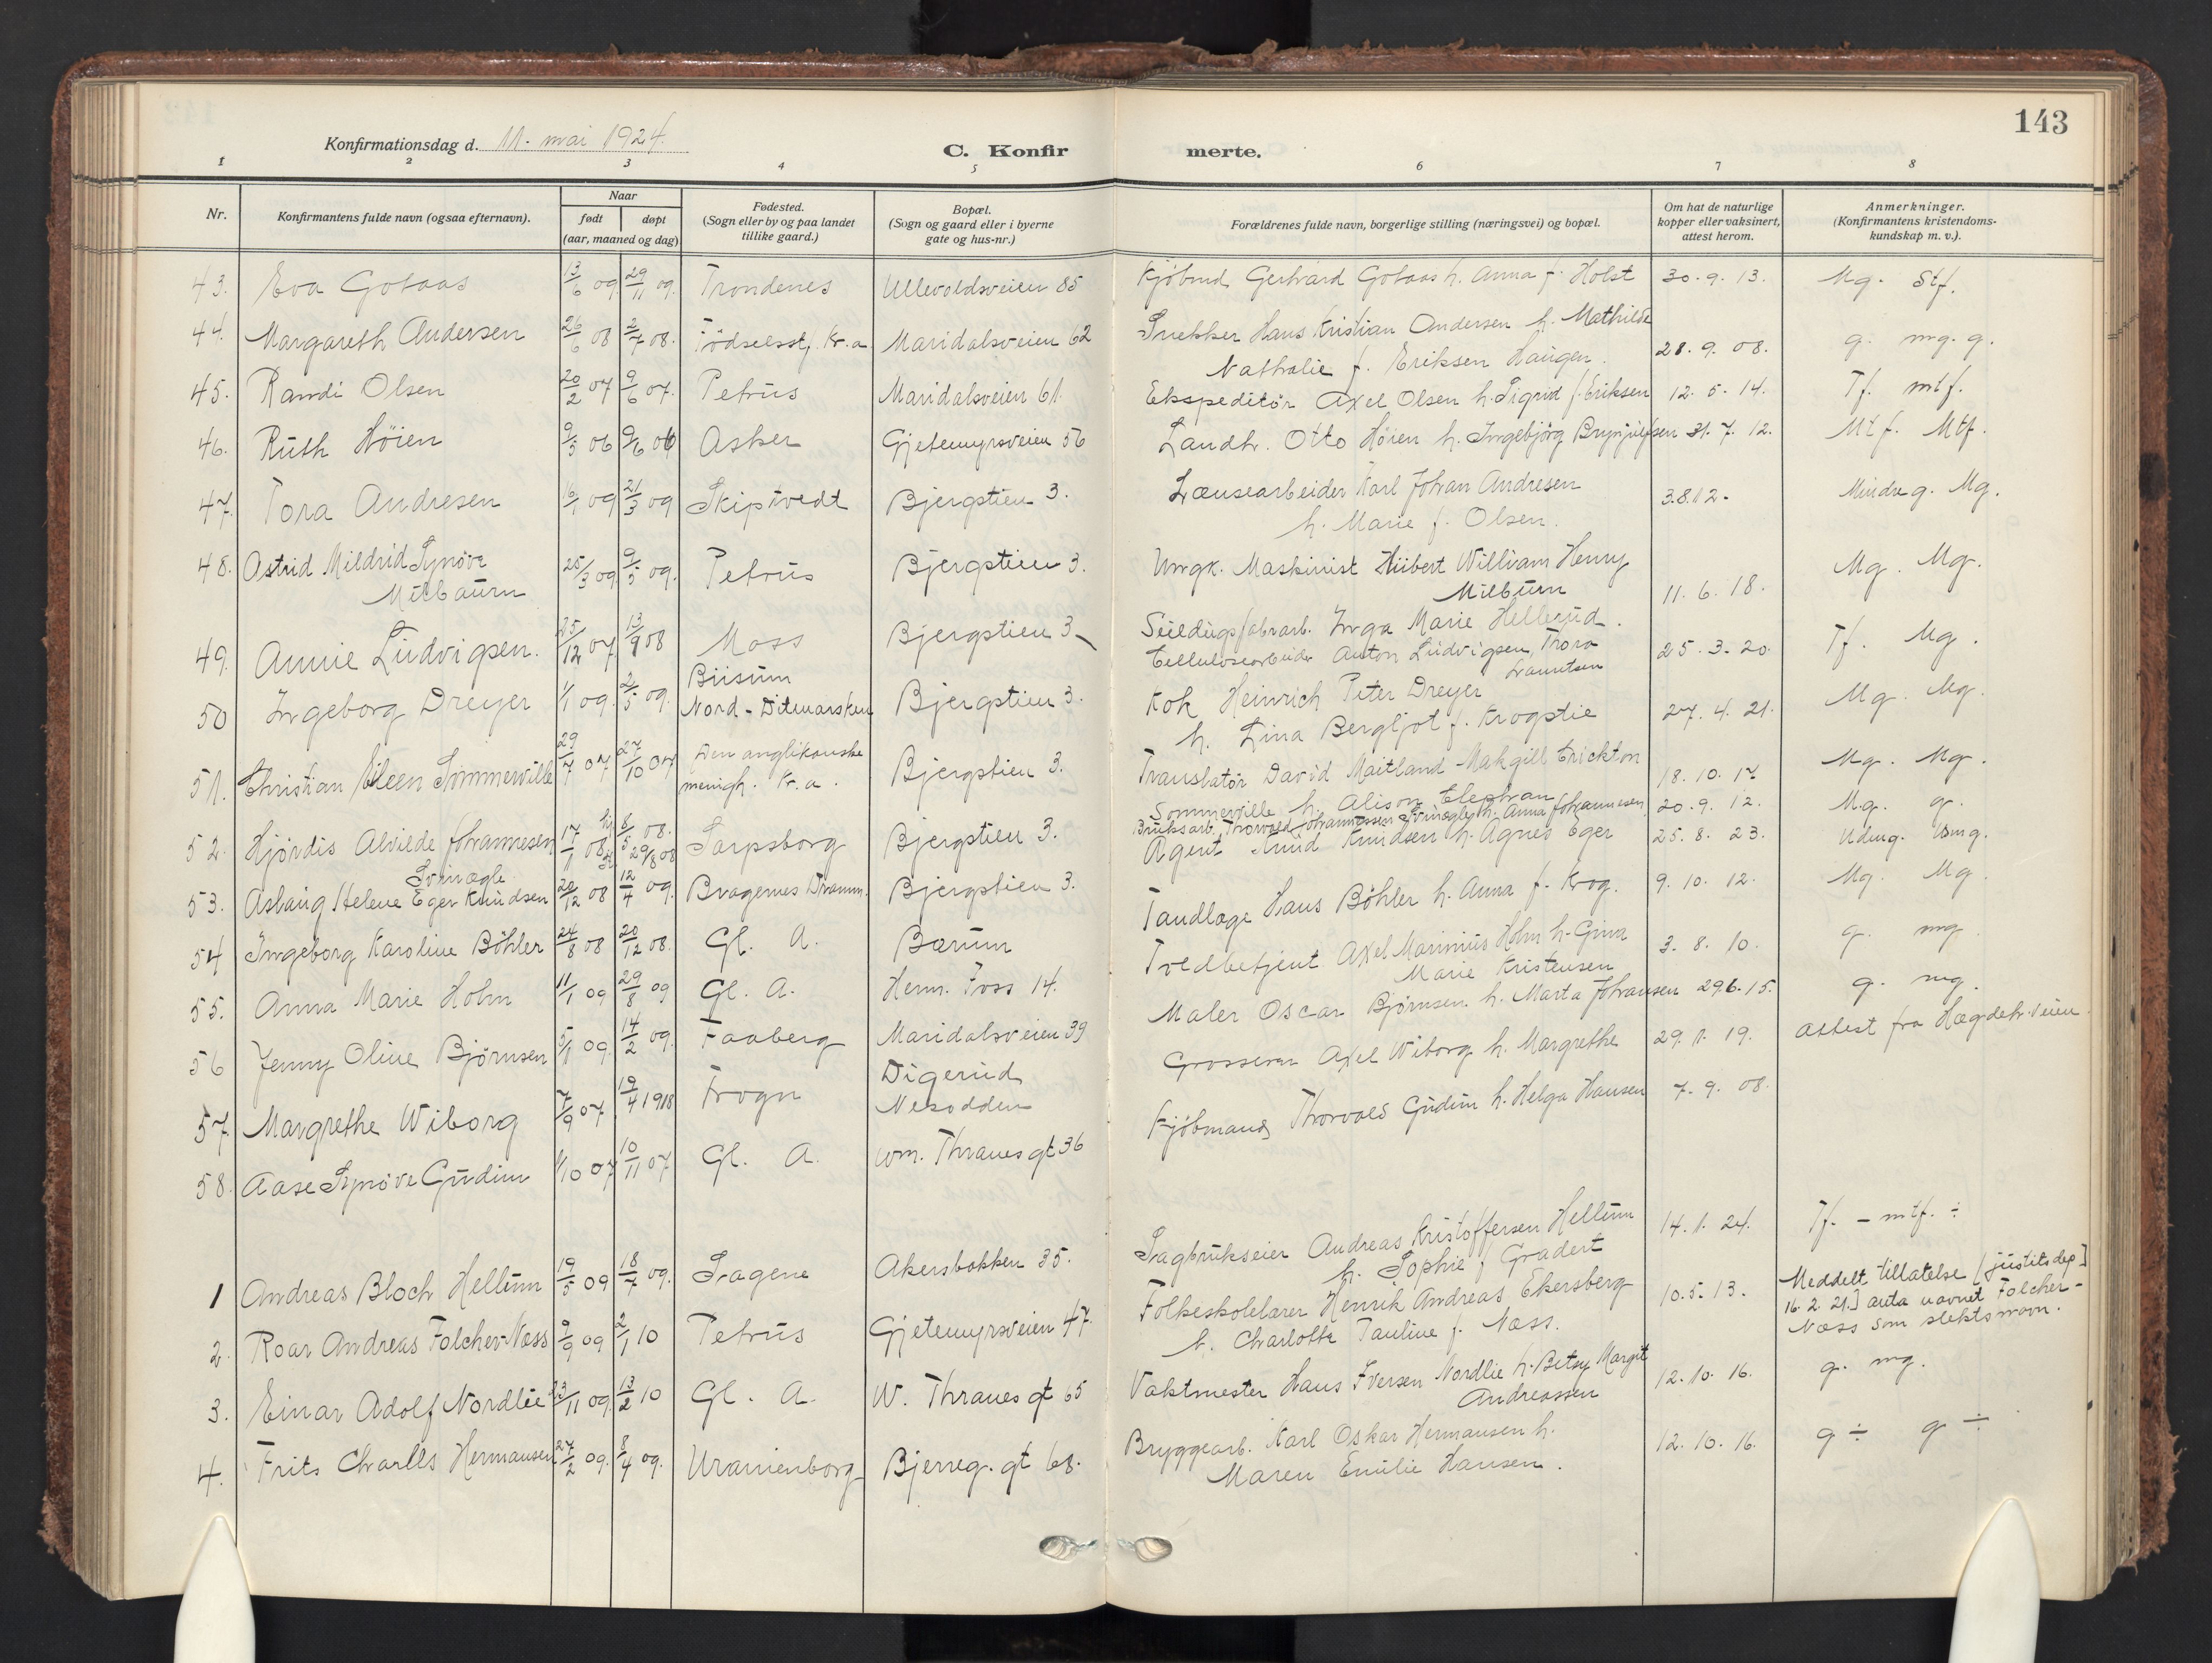 143
Konfirmationsdag d. 11. mai 1924.
C. Konfir merte.
1 2 3 4 5 6 7 8
Nr.
Konfirmantens fulde navn (ogsaa efternavn).
Naar
født døpt
(aar, maaned og dag)
Fødested.
(Sogn eller by og paa landet
tillike gaard.)
Bopæl.
(Sogn og gaard eller i byerne
gate og hus-nr.)
Forældrenes fulde navn, borgerlige stilling (næringsvei) og bopæl.
Om hat de naturlige
kopper eller vaksinert,
attest herom.
Anmerkninger.
(Konfirmantens kristendoms-
kundskap m. v.).
43. Eva Gotaas 13/6 09 29/11 09. Trondenes Ullevoldsveien 85 Kjøbmd Gerhard Gotaas h. Anna f. Holst 30.9.13. Mg. Stf.
44. Margareth Andersen 26/6 08 2/7 08. Fødselsst. Kr.a Maridalsveien 62 Snekker Hans Kristian Andersen h. Mathilde
Nathalie f. Eriksen Haugen. 28.9.08. g. mg. g.
45. Randi Olsen 20/2 07 9/6 07. Petrus Maridalsveien 61. Ekspeditør Axel Olsen h. Sigrid f. Eriksen 12.5.14. Tf. mtf.
46. Ruth Høien 9/5 06 9/6 06 Asker Gjetemyrsveien 56 Landh. Otto Høien h. Ingebjørg Brynjulfsen 31.7.12. Mtf. Mtf.
47. Tora Andresen 16/1 09 21/3 09 Skiptvedt Bjergstien 3. Lænsearbeider Karl Johan Andresen
h. Marie f. Olsen. 3.8.12. Mindre g. Mg.
48. Astrid Mildrid Synøve
Milbourn 25/3 09 9/5 09. Petrus Bjergstien 3. Ungk. Maskinist Hubert William Henry
Milburn 11.6.18. Mg. Mg.
Sildugsfabrarb. Inga Marie Hellerud.
49. Annie Ludvigsen. 25/12 07 13/9 08 Moss Bjergstien 3 Cellulosearbeider Anton Ludvigsen, Thora
Lauritsen 25.3.20. Tf. Mg.
50 Ingeborg Dreyer 1/1 09. 2/5 09. Büsum
Nord-Ditmarsken Bjergstien 3. Kok Heinrich Peter Dreyer
h. Lina Bergljot f. Krogstie 27.4.21. Mg. Mg.
51. Christian Eileen Sommerville 29/7 07 27/10 07 Den anglikanske
menigh. Kr.a. Bjergstien 3. Translatør David Maitland Makgill Crickton
Sommerville h. Alison Elephran 18.10.17 Mg. Mg.
52. Hjørdis Alvilde Johannesen
Svinægle 17/1 08 hj 8/5 08. 29/8 08 Sarpsborg Bjergstien 3. Bruksarb. Thorvald Johannessen Svinægle h. Anna Johannesen 20.9.12. Mg. g.
53. Aslaug Helene Eger Knudsen 20/12 08 12/4 09. Bragernes Dramm. Bjergstien 3. Agent Knud Knudsen h. Agnes Eger 25.8.23. Udmg. Udmg.
54 Ingeborg Karoline Bøhler 24/8 08 20/12 08. Gl. A. Bærum Tandlæge Hans Bøhler h. Anna f. Krog. 9.10.12. Mg. Mg.
55. Anna Marie Holm 11/1 09 29/8 09 Gl. A. Herm. Foss 14. Toldbetjent Axel Marinius Holm h. Gina
Marie Kristensen 3.8.10. g. mg
56 Jenny Oline Bjørnsen 5/1 09. 14/2 09. Faaberg Maridalsveien 39 Maler Oscar Bjørnsen h. Marta Johansen 29.6.15. g. mg.
57 Margrethe Wiborg 7/9 07 19/4 1918 Frogn Digerud
Nesodden Grosserer Axel Wiborg h. Margrethe 29.1.19. attest fra Hægdeh.veien.
58. Aase Synøve Gudim 1/10 07 10/11 07 Gl. A. Wm. Thranes gt 36 Kjøbmand Thorvald Gudim h. Helga Hansen 7.9.08.
1 Andreas Bloch Hellum 19/5 09 18/7 09. Sagene Akersbakken 35. Sagbrukseier Andreas Kristoffersen Hellum
h. Sophie f Gradert 14.1.24. Tf. - mtf. ÷
2. Roar Andreas Folcher-Næss 9/9 09 2/1 10 Petrus Gjetemyrsveien 47. Folkeskolelærer Henrik Andreas Ekersberg
h. Charlotte Pauline f. Næss. 10.5.13. Meddelt tillatelse [justitsdep.
16.2.21.] anta navnet Folcher-
Næss som slektsnavn.
3. Einar Adolf Nordlie 23/11 09. 13/2 10 Gl. A. W. Thranes gt 65 Vaktmester Hans Iversen Nordlie h. Betsy Margit
Andreassen 12.10.16. g. mg.
4. Frits Charlls Hermansen 27/2 09. 8/4 09. Uranienborg Bjerreg. gt 68. Bryggearb. Karl Oskar Hermansen h.
Maren Emilie Hansen. 12.10.16. g ÷ g ÷